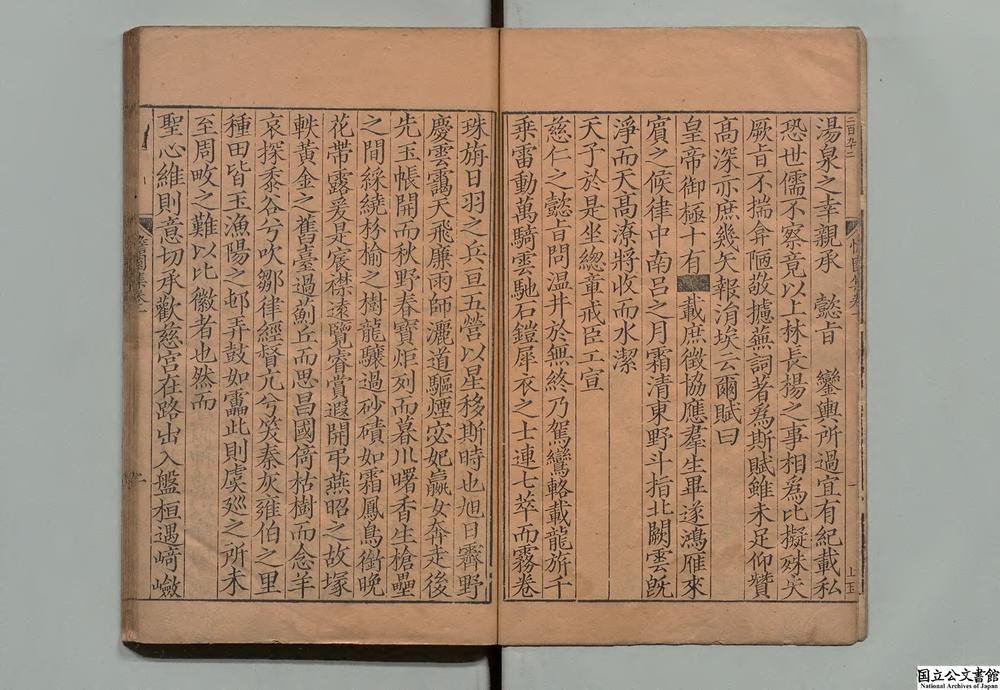 湯泉之幸親承　懿旨　鑾輿所過宜有紀載私
恐世儒不察竟以上林長揚之事相為比擬殊失
厥旨不揣弇陋敬攄蕪詞著為斯賦雖未足仰贊
高深亦庶幾矢報涓埃云爾賦曰
皇帝御極十有■載庶徵協應羣生畢遂鴻雁來
賓之候律中南呂之月霜清東野斗指北闕雲旣
淨而天高潦將收而水潔
天子於是坐總章戒臣工宣
慈仁之懿旨問温井於無終乃駕鸞輅載龍旂千
乘雷動萬騎雲馳石鎧犀衣之士連七萃而霧卷
珠旃日羽之兵亘五營以星移斯時也旭日霽野
慶雲靄天飛廉雨師灑道驅煙宓妃嬴女奔走後
先玉帳開而秋野春寶炬列而暮川曙香生槍壘
之間綵繞枌榆之樹龍驤過砂磧如霜鳳鳥銜晚
花帶露爰是宸襟遠覽睿賞遐開弔燕昭之故塚
軼黃金之舊臺過薊丘而思昌國倚枯樹而念羊
哀探黍谷兮吹鄒律經督亢兮笑秦灰雍伯之里
種田皆玉漁陽之邨弄鼓如靁此則虞廵之所未
至周畋之難以比徽者也然而
聖心維則意切承歡慈宮在路出入盤桓遇﨑嶮
國立公文書館
National Archives of Japan